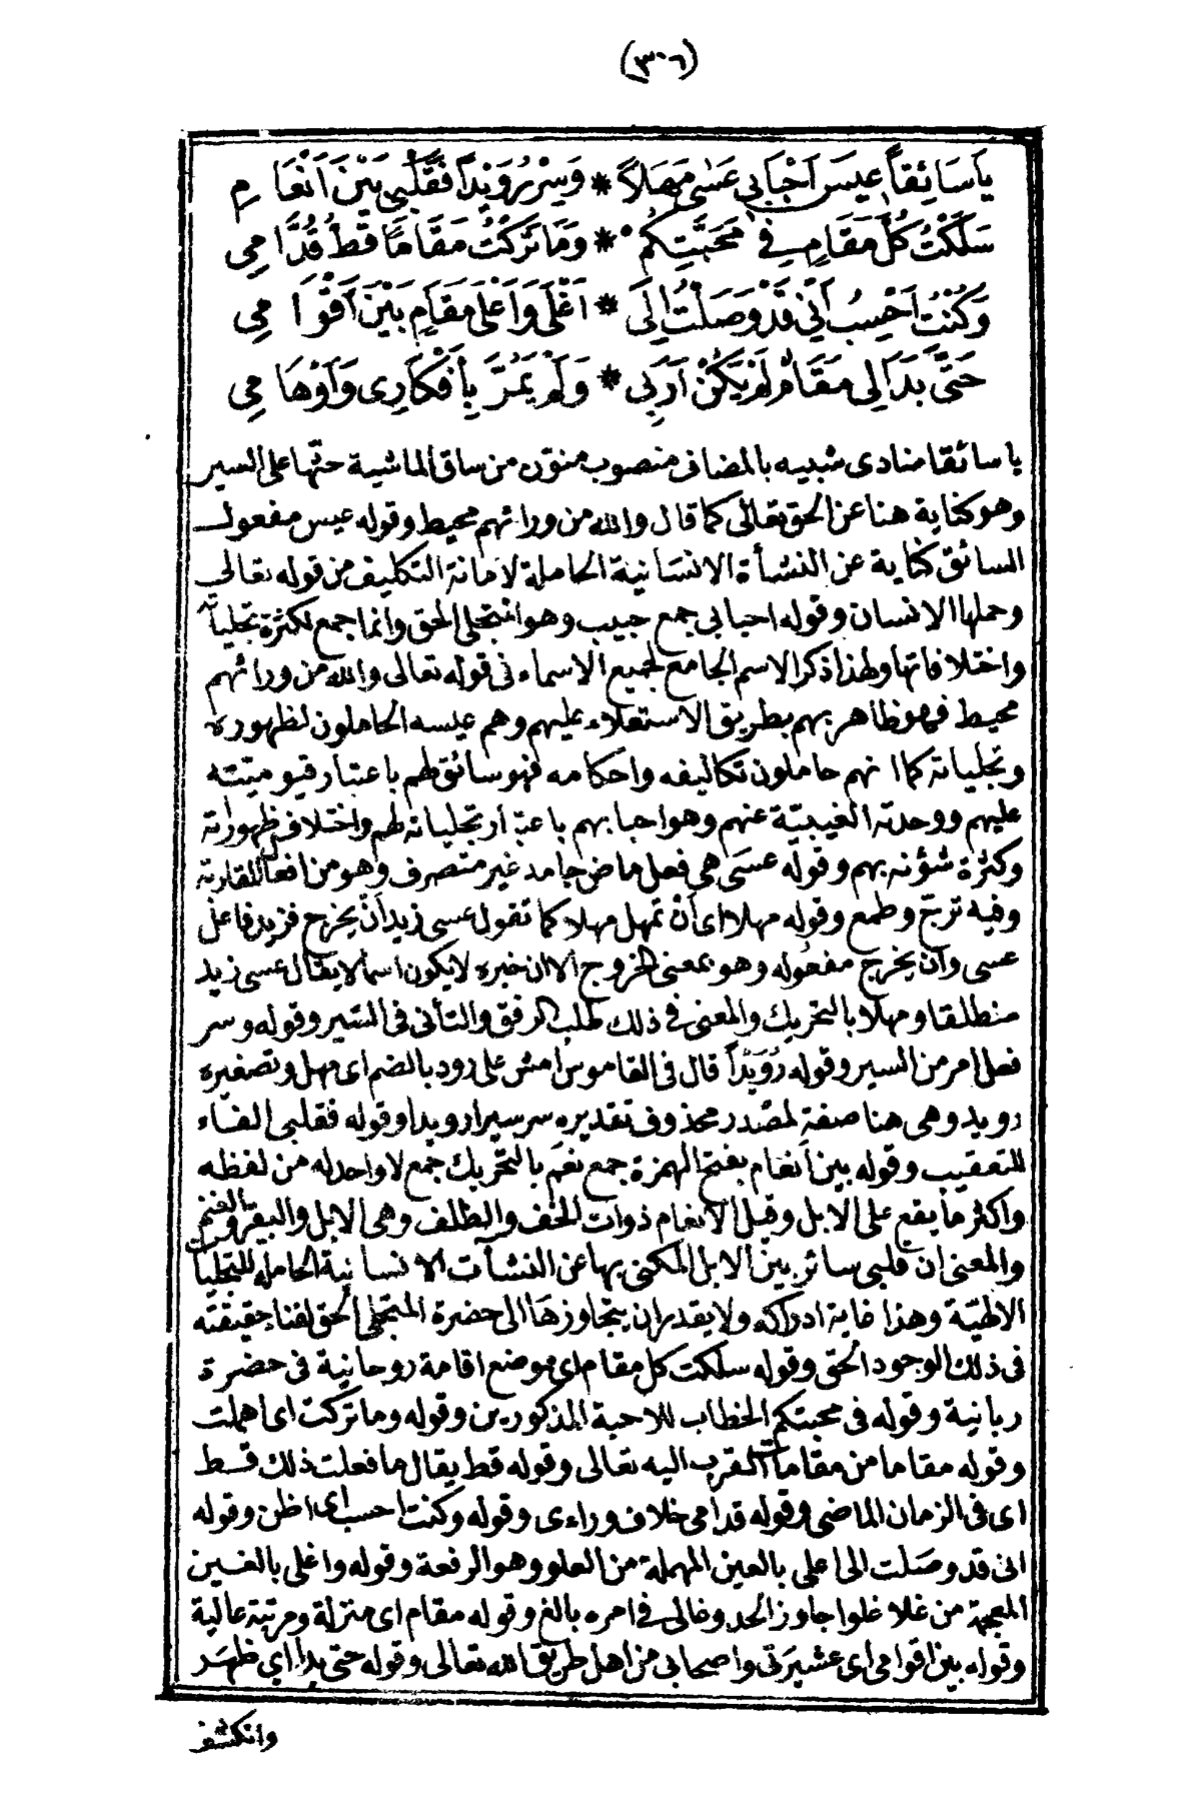 (٣٠٦)
يَا سَائِقاً عِيسَ اَحْبَابِي عَسٰى مَهَلاً * وَسِرْ رُوَيْداً فَقَلْبِي بَيْنَ اَنْعَامِ
سَلَكْتُ كُلَّ مَقَامٍ فِي مَحَبَّتِكُمْ * وَمَا تَرَكْتُ مَقَامًا قَطُّ قُدَّامِي
وَكُنْتُ اَحْسِبُ اَنِّي قَدْ وَصَلْتُ اِلَى * اَعْلَى وَاَغْلَى مَقَامٍ بَيْنَ اَقْوَامِي
حَتَّى بَدَا لِي مَقَامٌ لَمْ يَكُنْ اَرَبِي * وَلَمْ يَمُرَّ بِأَفْكَارِي وَاَوْهَامِي
يا سائقا منادى شبيه بالمضاف منصوب منوّن من ساق الماشية حثّها على السير
وهو كناية هنا عن الحق تعالى كما قال والله من ورائهم محيط وقوله عيس مفعول
السائق كناية عن النشأة الانسانية الحاملة لامانة التكليف من قوله تعالى
وحملها الانسان وقوله احبابي جمع حبيب وهو المتجلى الحق وانما جمع لكثرة تجلياته
واختلافاتها ولهذا ذكر الاسم الجامع لجميع الاسماء في قوله تعالى والله من ورائهم
محيط فهو ظاهر بهم بطريق الاستعلاء عليهم وهم عيسه الحاملون لظهوره
وتجلياته كما انهم حاملون تكاليفه واحكامه فهو سائق لهم باعتبار قيوميته
عليهم ووحدته الغيبيّة عنهم وهو احبابهم باعتبار تجلياته لهم واختلاف ظهوراته
وكثرة شؤنه بهم وقوله عسى هي فعل ماض جامد غير متصرف وهو من افعال المقاربة
وفيه ترجّ وطمع وقوله مهلا اى أن تمهل مهلا كما تقول عسى زيد أن يخرج فزيد فاعل
عسى وأن يخرج مفعوله وهو بمعنى الخروج الا ان خبره لا يكون اسما لا يقال عسى زيد
منطلقا ومهلا بالتحريك والمعنى في ذلك طلب الرفق والتأنى فى السير وقوله وسر
فعل امر من السير وقوله رُوَيْداً قال فى القاموس امش على رود بالضم اى مهل وتصغيره
رويد وهى هنا صفة لمصدر محذوف تقديره سر سيرا رويدا وقوله فقلبى الفاء
للتعقيب وقوله بين أنعام بفتح الهمزة جمع نَعَم بالتحريك جمع لا واحد له من لفظه
واكثر ما يقع على الابل وقيل الانعام ذوات الخف والظلف وهى الابل والبقر والغنم
والمعنى ان قلبى سائر بين الابل المكنى بها عن النشآت الانسانية الحاملة للتجليات
الالهيّة وهذا غاية ادراكه ولا يقدر ان يتجاوزها الى حضرة المتجلى الحق لفناء حقيقته
فى ذلك الوجود الحق وقوله سلكت كل مقام اى موضع اقامة روحانية فى حضرة
ربانية وقوله فى محبتكم الخطاب للاحبة المذكورين وقوله وما تركت اى اهملت
وقوله مقاما من مقامات القرب اليه تعالى وقوله قط يقال ما فعلت ذلك قط
اى فى الزمان الماضى وقوله قدامى خلاف وراءى وقوله وكنت احسب اى اظن وقوله
انى قد وصلت الى اعلى بالعين المهملة من العلو وهو الرفعة وقوله واغلى بالغين
المعجمة من غلا غلوا جاوز الحد وغالى فى امره بالغ وقوله مقام اى منزلة ومرتبة عالية
وقوله بين اقوامى اى عشيرتى واصحابى من اهل طريق الله تعالى وقوله حتى بدا اى ظهر
وانكشف